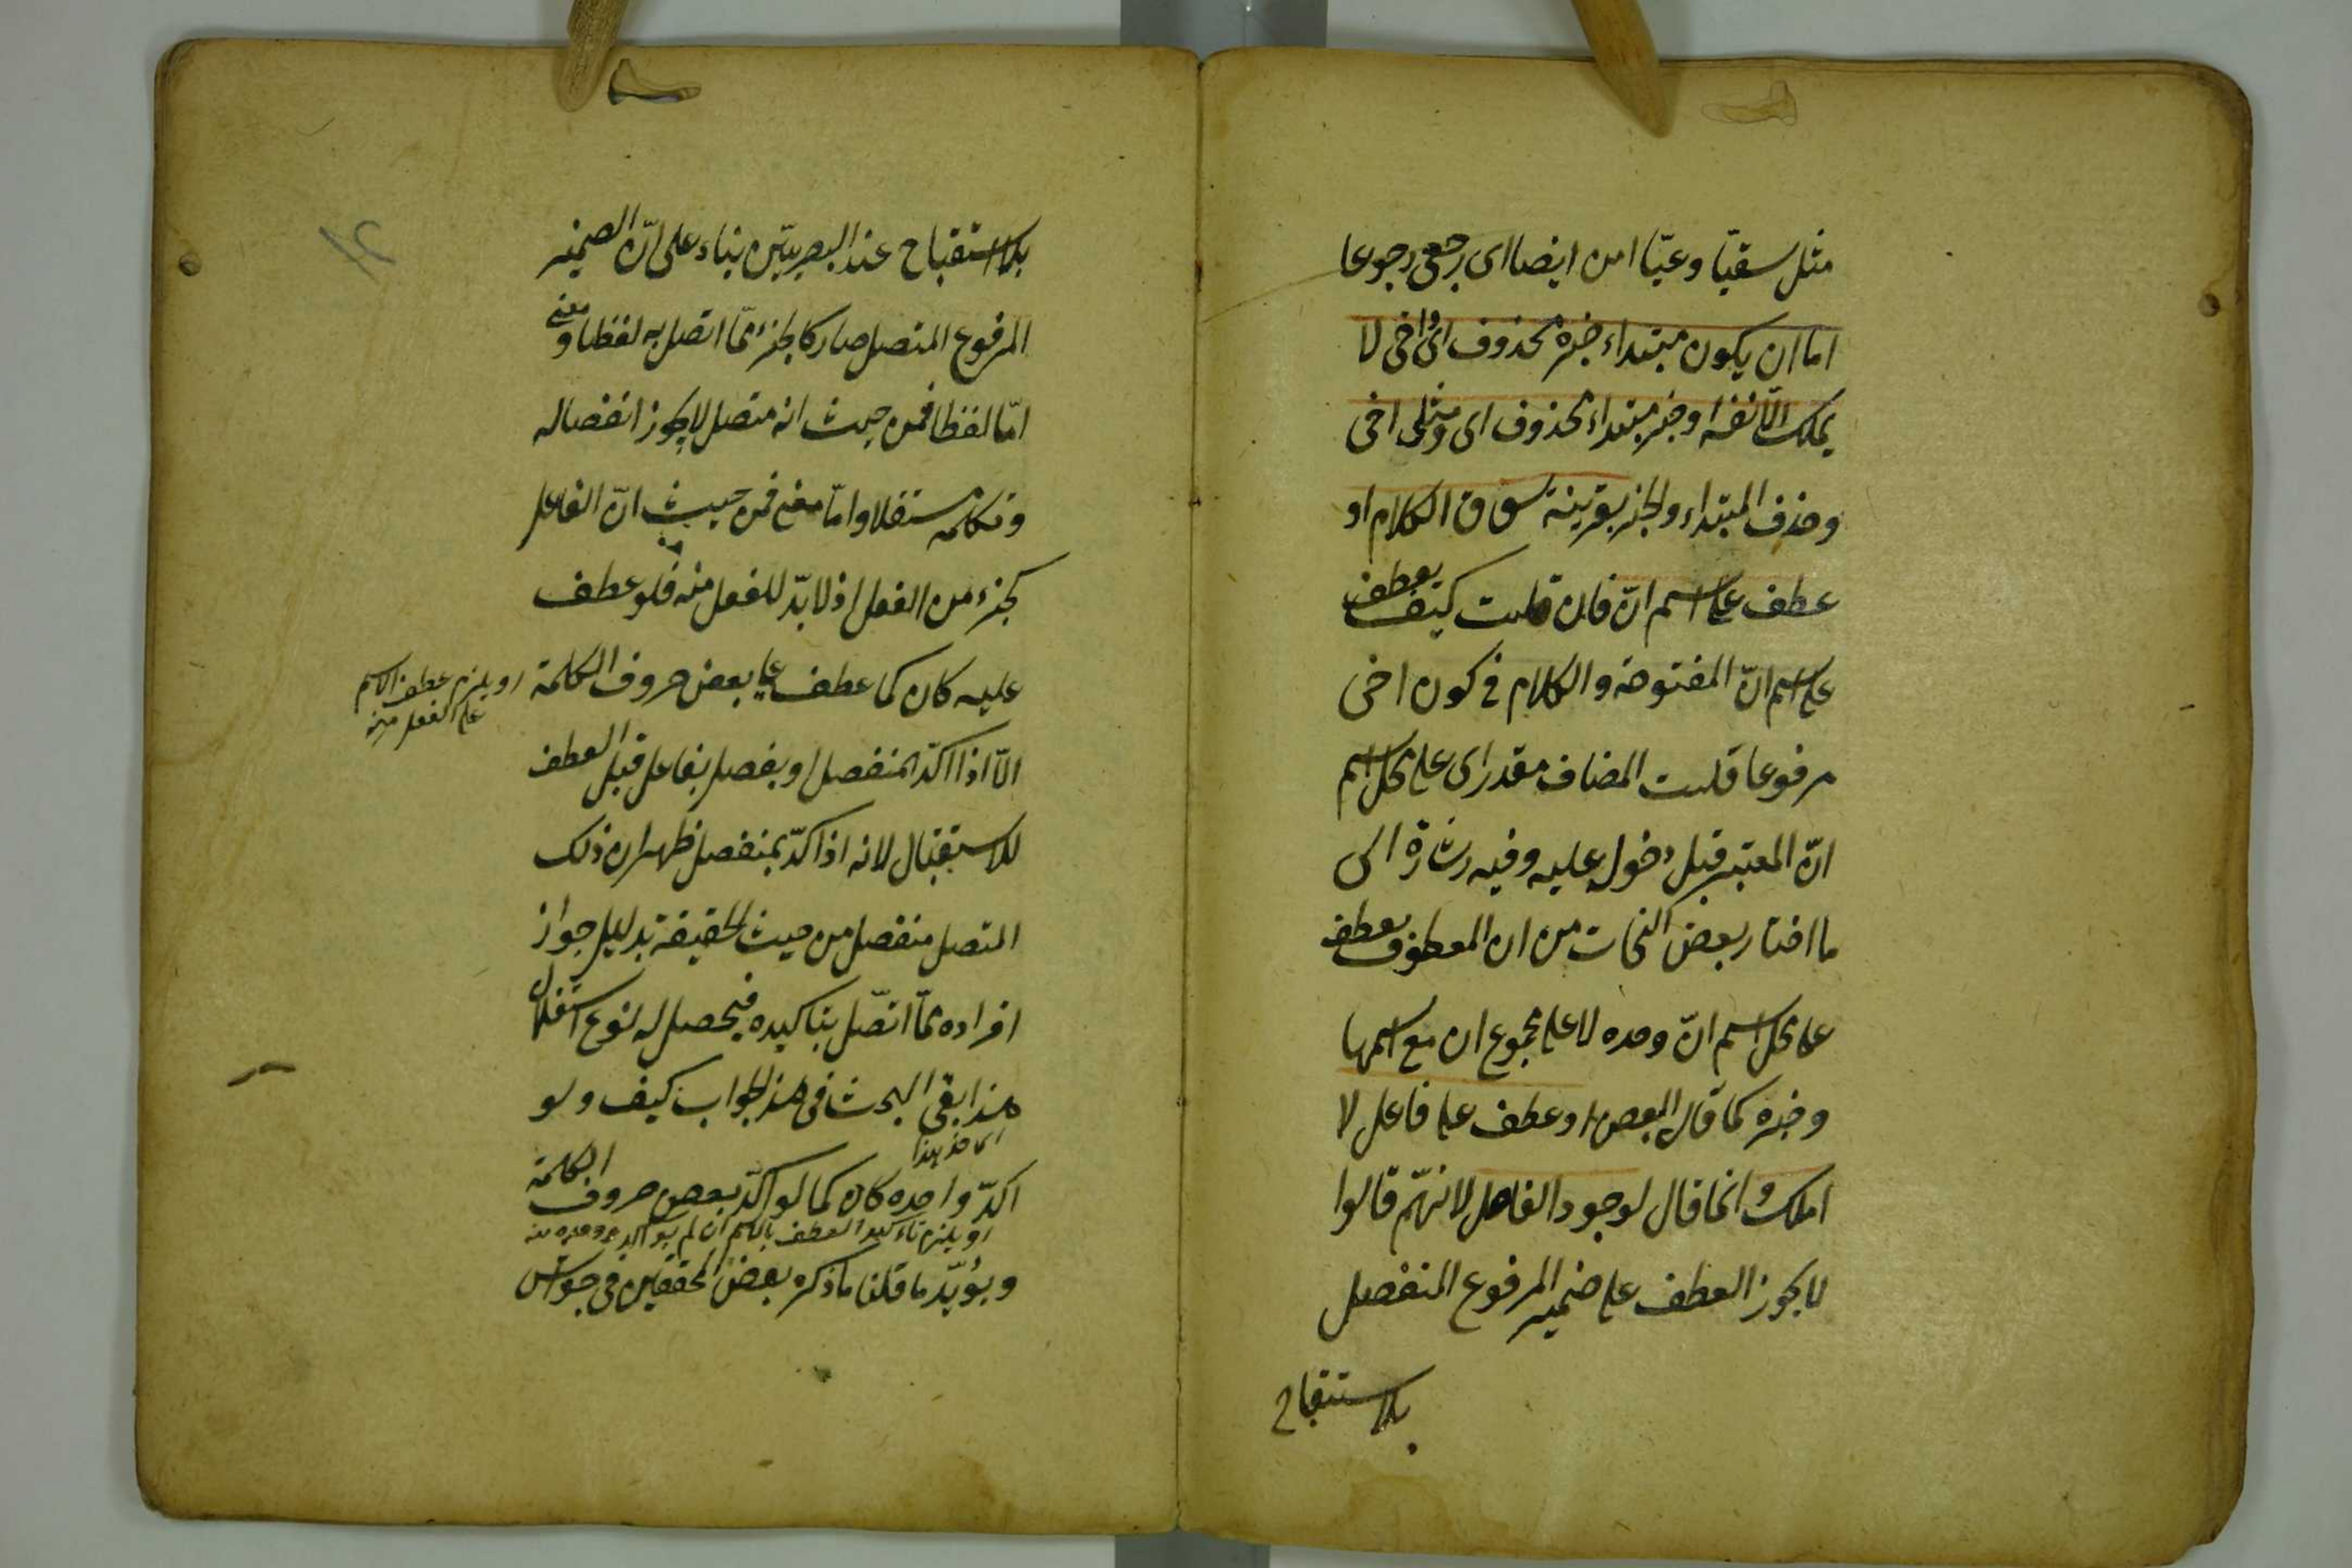 مثل سقيا وعيّا امن ايضا اى رجعى رجوعا
اما ان يكون مبتداء خبره محذوف اى واخى لا
يملك الّا نفسه او خبر مبتداء محذوف اى ومثلى اخى
وحذف المبتداء والخبر بقرينة سوق الكلام او
عطف على اسم انّ فان قلت كيف يعطف
على اسم انّ المفتوحة والكلام فى كون اخى
مرفوعا قلت المضاف مقدر اى على محل اسم
انّ المعتبر قبل دخول عليه وفيه اشارة الى
ما اختار بعض النحات من ان المعطوف يعطف
على محل اسم انّ وحده لا على مجموع ان مع اسمها
وخبره كما قال البعض او عطف على فاعل لا
املك وانما قال لوجود الفاصل لانهّم قالوا
لا يجوز العطف على ضمير المرفوع المنفصل
بلا استقباح
بلا استقباح عند البصريّين بناء على انّ الضمير
المرفوع المتصل صار كالجزء ممّا اتصل به لفظا ومعنى
امّا لفظا فمن حيث انه متصل لا يجوز انفصاله
وتكلمه مستقلا وامّا معنى فمن حيث انّ الفاعل
كجزء من الفعل اذ لا بدّ للفعل منه فلو عطف
عليه كان كما عطف على بعض حروف الكلمة
او يلزم عطف الاسم
على الفعل منه
الّا اذا اكدّ المنفصل او يفصل بفاعل قبل العطف
للاستقبال لانه اذا اكدّ بمنفصل ظهر ان ذلك
المتصل منفصل من حيث الحقيقة بدليل جواز
افراده ممّا اتصّل بتاكيده فيحصل له نوع استقلال
هذا بقى البحث فى هذ الجواب كيف ولو
اكدّ واحده كان كما لو اكدّ بعض حروف الكلمة
او يلزم تاءكيد العطف بالاسم ان لم
ويؤيّد ما قلنا ما ذكره بعض المحققين فى جواش
١٢